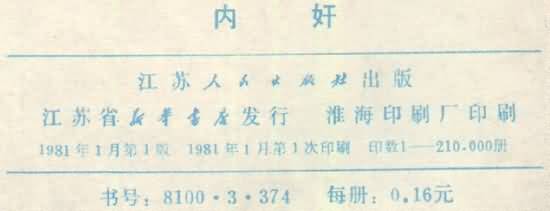 内 奸
江苏人民出版社出版
江苏省新华书店发行 淮海印刷厂印刷
1981年1月第1版 1981年1月第1次印刷 印数1—210.000册
书号：8100·3·374 每册：0.16元